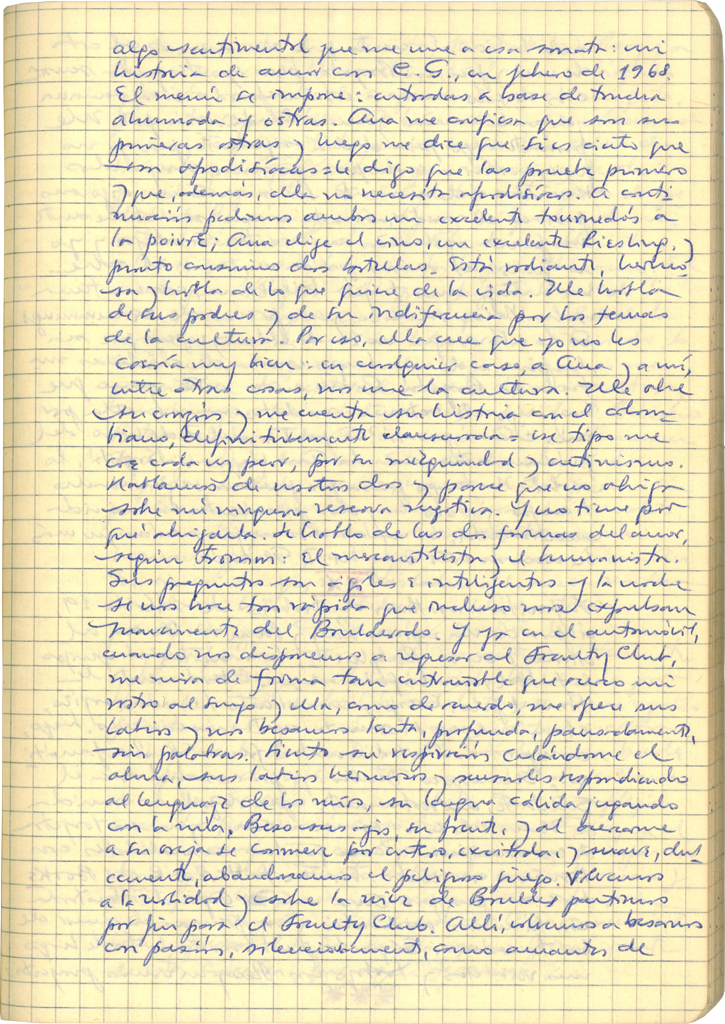 algo sentimental que me une a esa sonata: mi
historia de amor con C. G., en febrero de 1968.
El menú se impone: entradas a base de trucha
ahumada y ostras. Ana me confiesa que son sus
primeras ostras y luego me dice que si es cierto que
son afrodisíacas = le digo que las pruebe primero
y que, además, ella no necesita afrodisíacos. A conti-
nuación pedimos ambos un excelente tournedós a
la poivre; Ana elige el vino, un excelente Riesling, y
pronto consumimos dos botellas. Está radiante, hermo-
sa y habla de lo que quiere de la vida. Me habla
de sus padres y de su indiferencia por los temas
de la cultura. Por eso, ella cree que yo no les
caería muy bien: en cualquier caso, a Ana y a mí,
entre otras cosas, nos une la cultura. Me abre
su corazón y me cuenta su historia con el colom-
biano, definitivamente clausurada = ese tipo me
cae cada vez peor, por su mezquindad y cretinismo.
Hablamos de nosotros dos y parece que no abriga
sobre mí ninguna reserva negativa. Y no tiene por
qué abrigarla. Le hablo de las dos formas del amor,
según Fromm: El mercantilista y el humanista.
Sus preguntas son ágiles e inteligentes y la noche
se nos hace tan rápida que incluso nos expulsan
suavemente del Boulderado. Y ya en el automóvil,
cuando nos disponemos a regresar al Faculty Club,
me mira de forma tan entrañable que acerco mi
rostro al suyo y ella, como de acuerdo, me ofrece sus
labios y nos besamos lenta, profunda, pausadamente,
sin palabras. Siento su respiración calándome el
alma, sus labios hermosos y sensuales respondiendo
al lenguaje de los míos, su lengua cálida jugando
con la mía. Beso sus ojos, su frente, y al acercarme
a su oreja se conmueve por entero, excitada, y suave, dul-
cemente, abandonamos el peligroso juego. Volvemos
a la realidad y sobre la nieve de Boulder partimos
por fin para el Faculty Club. Allí, volvemos a besarnos
con pasión, silenciosamente, como amantes de